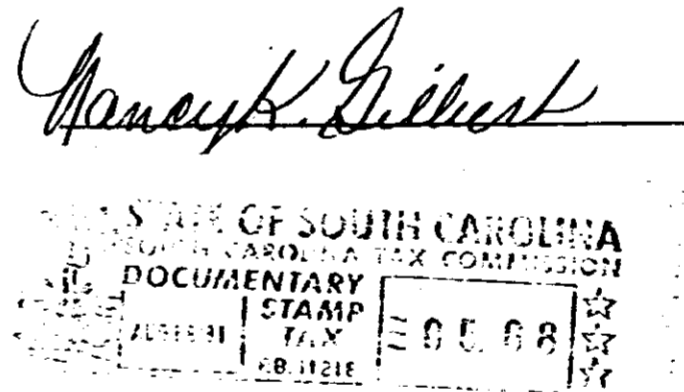 Nancy K. Gilbert
STATE OF SOUTH CAROLINA
SOUTH CAROLINA TAX COMMISSION
DOCUMENTARY
STAMP
TAX
= 05.08